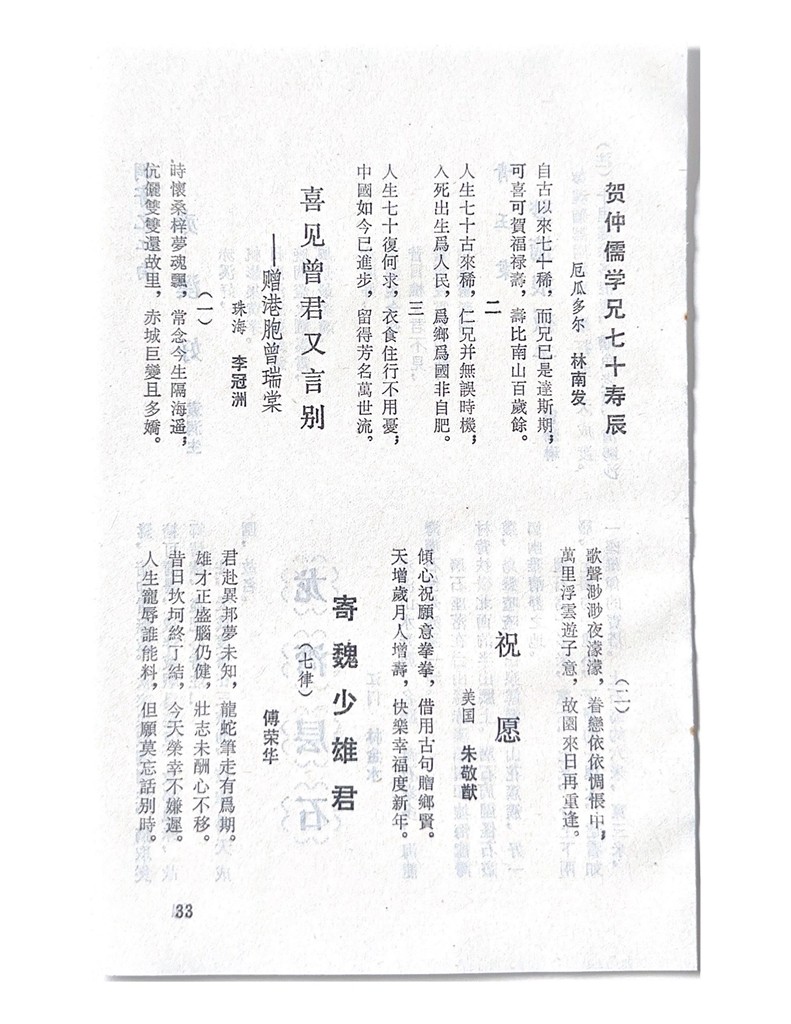 贺仲儒学兄七十寿辰
厄瓜多尔　林南发
自古以來七十稀，而兄已是達斯期；
可喜可賀福禄壽，壽比南山百歲餘。
二
人生七十古來稀，仁兄并無誤時機；
入死出生爲人民，爲鄉爲國非自肥。
三
人生七十復何求，衣食住行不用憂；
中國如今已進步，留得芳名萬世流。
喜见曾君又言别
——赠港胞曾瑞棠
珠海　李冠洲
（一）
時懷桑梓夢魂飄，常念今生隔海遥；
伉儷雙雙還故里，赤城巨變且多嬌。
（二）
歌聲渺渺夜濛濛，眷戀依依惆悵中；
萬里浮雲遊子意，故園來日再重逢。
祝愿
美国　朱敬猷
傾心祝願意拳拳，借用古句贈鄉賢。
天增歲月人增壽，快樂幸福度新年。
寄魏少雄君
（七律）
傅荣华
君赴異邦夢未知，龍蛇筆走有爲期。
雄才正盛腦仍健，壯志未酬心不移。
昔日坎坷終了結，今天榮幸不嫌遲。
人生寵辱誰能料，但願莫忘話別時。
33